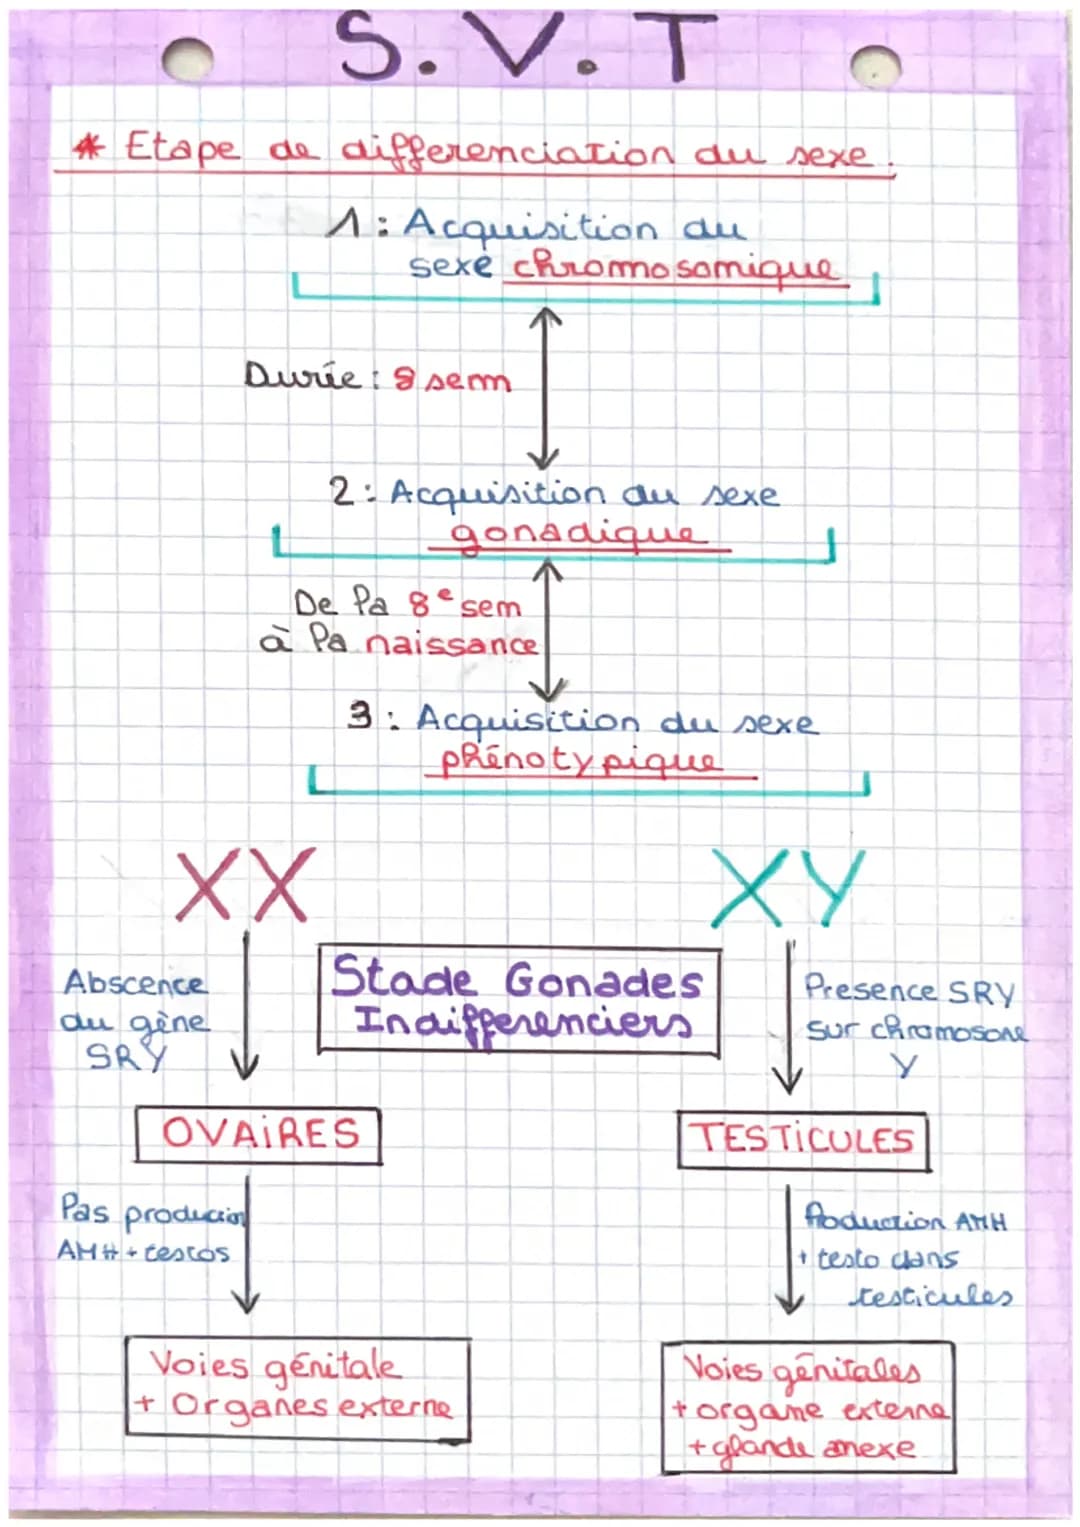 S.V.T
* Etape de differenciation du sexe.
1: Acquisition du
sexe chromosomique
Durée: 8 sem
2: Acquisition du sexe
gonadique
De la 8e sem
à la naissance
3: Acquisition du sexe
phénotypique
XX
XY
Abscence
du gène
SRY
Stade Gonades
Indifferenciers
Presence SRY
sur chromosone
Y
OVAIRES
TESTICULES
Pas producion
AMH + testos
Production AMH
+ testo dans
testicules
Voies génitale
+ Organes externe
Voies génitales
+ organe externe
+ glande anexe